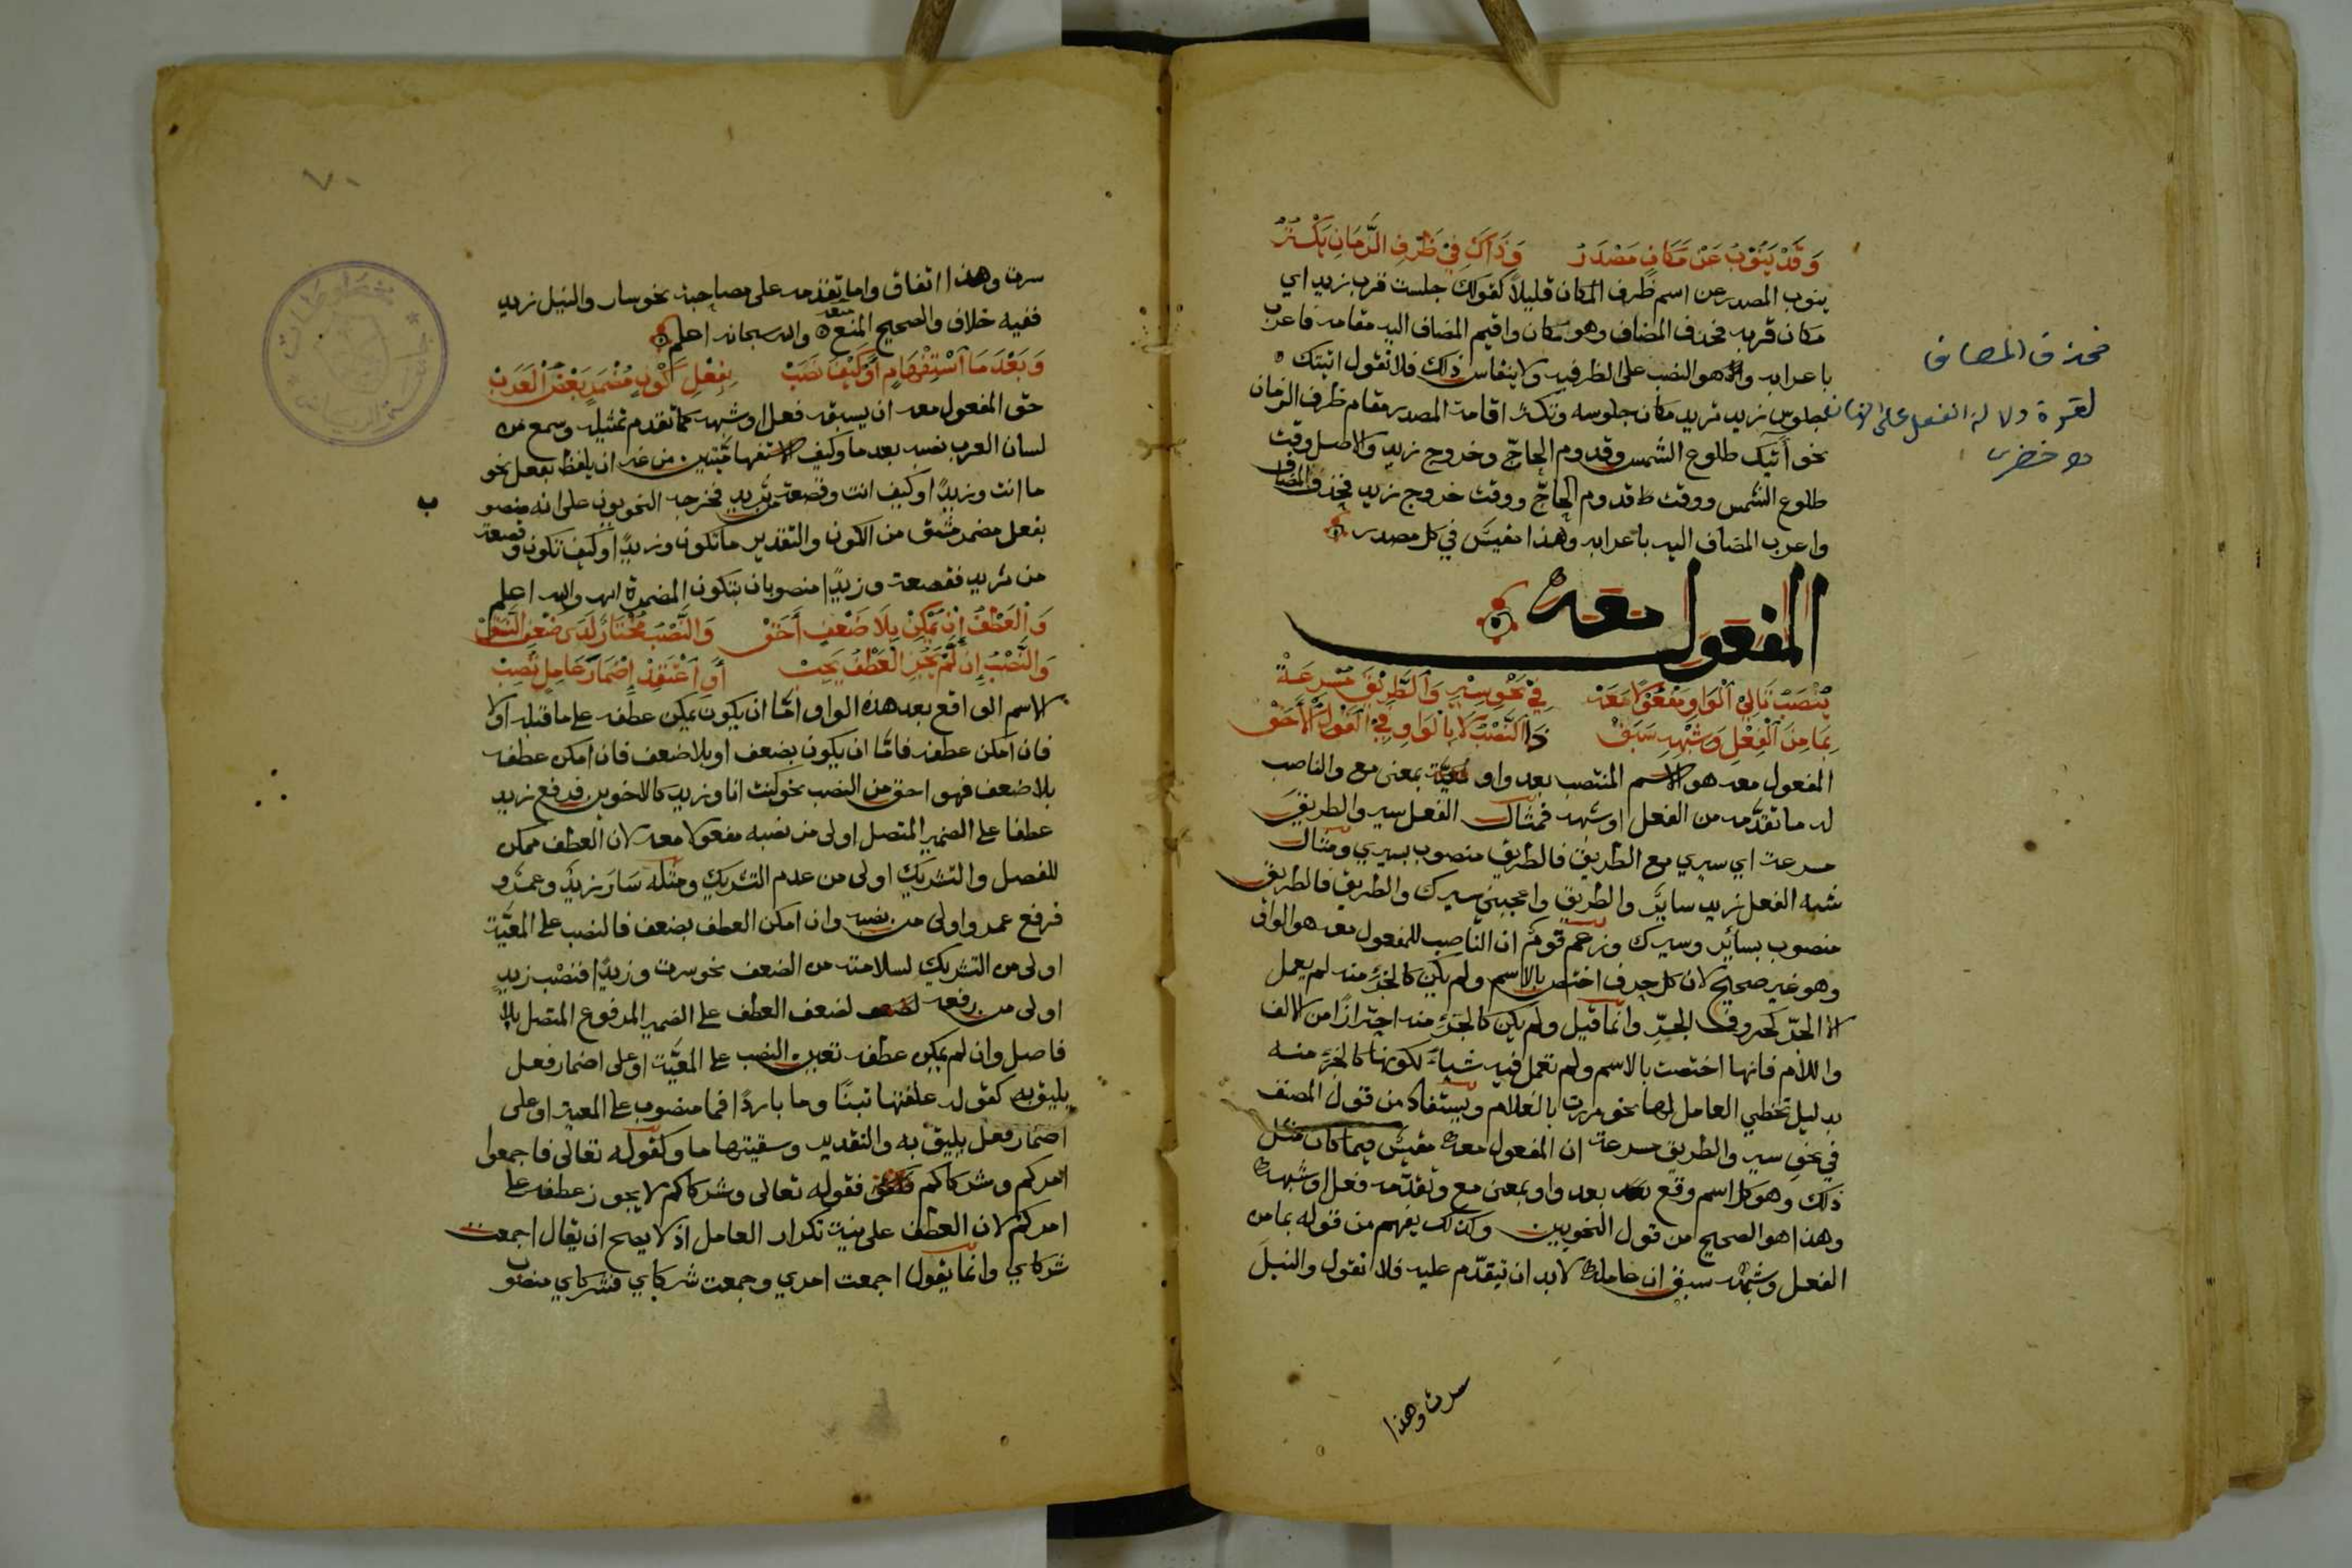 وَقَدْ يَنُوبُ عَنْ مَكَانٍ مَصْدَرُ وَذَاكَ فِي ظَرْفِ الزَّمَانِ يَكْثُرُ
ينوب المصدر عن اسم ظرف المكان قليلاً كقولك جلست قرب زيد اي
مكان قربه فحذف المضاف وهو مكان واقيم المضاف اليه مقامه فاعرب
باعرابه وهو النصب على الظرفيه ولا ينقاس ذلك فلا تقول اتيتك
جلوس زيد تريد مكان جلوسه ويكثر اقامة المصدر مقام ظرف الزمان
نحو آتيك طلوع الشمس وقدوم الحاجّ وخروج زيد والاصل وقت
طلوع الشمس ووقت قدوم الحاجّ ووقت خروج زيد فحذف المضاف
واعرب المضاف اليه باعرابه وهذا مقيسٌ في كل مصدر
فحذف المضاف
لقوة دلالة الفعل على الزمان
اه خضري
المفعول معه
يُنْصَبُ تَالِي الْوَاوِ مَفْعُولًا مَعَهْ فِي نَحْوِ سِيرِي وَالطَّرِيقَ مُسْرِعَةْ
بِمَا مِنَ الْفِعْلِ وَشِبْهِهِ سَبَقْ ذَا النَّصْبُ لَا بِالْوَاوِ فِي الْقَوْلِ الْأَحَقْ
المفعول معه هو الاسم المنتصب بعد واو بمعنى مع والناصب
له ما تقدّمه من الفعل او شبهه فمثال الفعل سيري والطريق
مسرعة اي سيري مع الطريق فالطريق منصوب بسيري ومثال
شبه الفعل زيد سايرٌ والطريق واعجبني سيرك والطريق فالطريق
منصوب بسائر وسيرك وزعم قومٌ ان الناصب للمفعول معه هو الواو
وهو غير صحيح لان كل حرف اختص بالاسم ولم يكن كالجزء منه لم يعمل
الا الجرّ كحروف الجرّ وانما قيل ولم يكن كالجزء منه احترازًا من الالف
واللام فانها اختصت بالاسم ولم تعمل فيه شياءً لكونها كالجزء منه
بدليل تخطي العامل لها نحو مررت بالغلام ويستفاد من قول المصنف
في نحو سيري والطريق مسرعة ان المفعول معه مقيسٌ فيما كان مثل
ذلك وهو كل اسم وقع بعد واو بمعنى مع وتقدّمه فعل او شبهه
وهذا هو الصحيح من قول النحويين وكذلك يفهم من قوله بما من
الفعل وشبهه سبق ان عامله لا بد ان يتقدّم عليه فلا تقول والنيلَ
سرت وهذا
٧٠
سرت وهذا اتفاق واما تقدمه على مصاحبه نحو سار والنيل زيد
ففيه خلاف والصحيح المنع والله سبحانه اعلم
وَبَعْدَ مَا اسْتِفْهَامٍ أَوْ كَيْفَ نَصَبْ بِفِعْلِ كَوْنٍ مُضْمَرٍ بَعْضُ الْعَرَبْ
حق المفعول معه ان يسبقه فعل او شبهه كما تقدم تمثيله وسمع من
لسان العرب نصبه بعد ما وكيف الاستفهاميّتين من غير ان يلفظ بفعل نحو
ما انت وزيدًا وكيف انت وقصعة من ثريد فخرجه النحويون على انه منصو
ب
بفعل مضمر مشتق من الكون والتقدير ما تكون وزيدًا وكيف تكون وقصعة
من ثريد فقصعة وزيدًا منصوبان بتكون المضمرة والله اعلم
وَالْعَطْفُ إِنْ يُمْكِنْ بِلَا ضَعْفٍ أَحَقْ وَالنَّصْبُ مُخْتَارٌ لَدَى ضَعْفِ النَّسَقْ
وَالنَّصْبُ إِنْ لَمْ يَجُزِ الْعَطْفُ يَجِبْ أَوِ اعْتَقِدْ إِضْمَارَ عَامِلٍ تُصِبْ
الاسم الواقع بعد هذه الواو امّا ان يكون يمكن عطفه على ما قبله اولا
فان امكن عطفه فامّا ان يكون بضعف او بلا ضعف فان امكن عطفه
بلا ضعف فهو احق من النصب نحو كنت انا وزيد كالاخوين فرفع زيد
عطفا على الضمير المتصل اولى من نصبه مفعولا معه لان العطف ممكن
للفصل والتشريك اولى من عدم التشريك ومثله سَارَ زيدٌ وعمرٌو
فرفع عمرو اولى من نصبه وان امكن العطف بضعف فالنصب على المعيّة
اولى من التشريك لسلامته من الضعف نحو سرت وزيدًا فنصْب زيدٍ
اولى من رفعه لضعف العطف على الضمير المرفوع المتصل بلا
فاصل وان لم يمكن عطفه تعين النصب على المعيّة او على اضمار فعل
يليق به كقوله علفتها تبنًا وما باردًا فما منصوب على المعية او على
اضمار فعل يليق به والتقدير وسقيتها ما وكقوله تعالى فاجمعوا
امركم وشركاكم فقوله تعالى وشركاكم لا يجوز عطفه على
امركم لان العطف على نية تكرار العامل اذ لا يصح ان يقال اجمعت
شركاي وانما يقول اجمعت امري وجمعت شركاي فشركاي منصوب